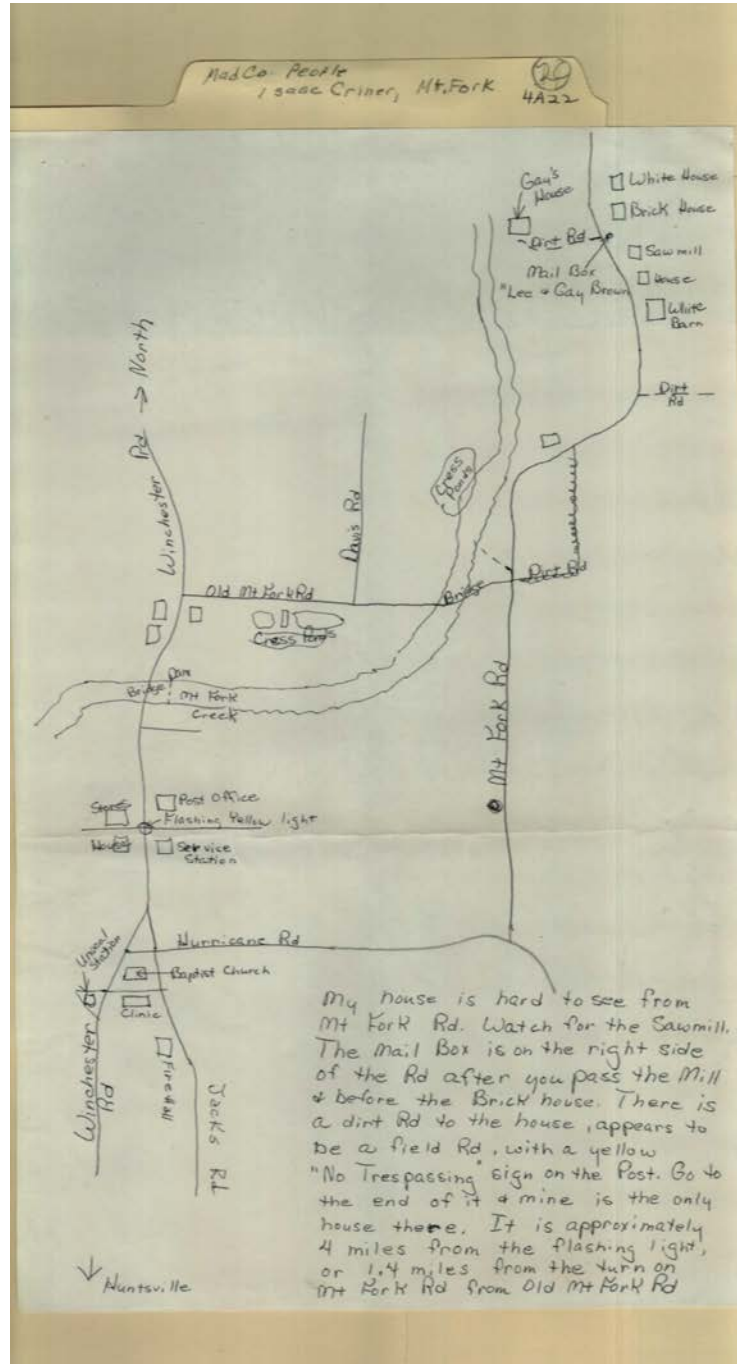 Mad Co. People
Isaac Criner, Mt. Fork
29
4A22
Gay's
House
White House
Brick House
Dirt Rd
Sawmill
Mail Box
"Lee & Gay Brown
House
White
Barn
Dirt
Rd
Winchester Rd → North
Cress
Ponds
Davis Rd
Old Mt Fork Rd
Bridge
Dirt Rd
Cress Ponds
Dam
Bridge
Mt Fork
Creek
Mt Fork Rd
Post Office
Flashing Yellow light
House
Service
Station
Hurricane Rd
Station
Baptist Church
Clinic
Winchester
Rd
Jacks Rd
My house is hard to see from
Mt Fork Rd. Watch for the Sawmill.
The Mail Box is on the right side
of the Rd after you pass the Mill
& before the Brick house. There is
a dirt Rd to the house, appears to
be a field Rd, with a yellow
"No Trespassing" sign on the Post. Go to
the end of it & mine is the only
house there. It is approximately
4 miles from the flashing light,
or 1.4 miles from the turn on
Mt Fork Rd from Old Mt Fork Rd
Huntsville